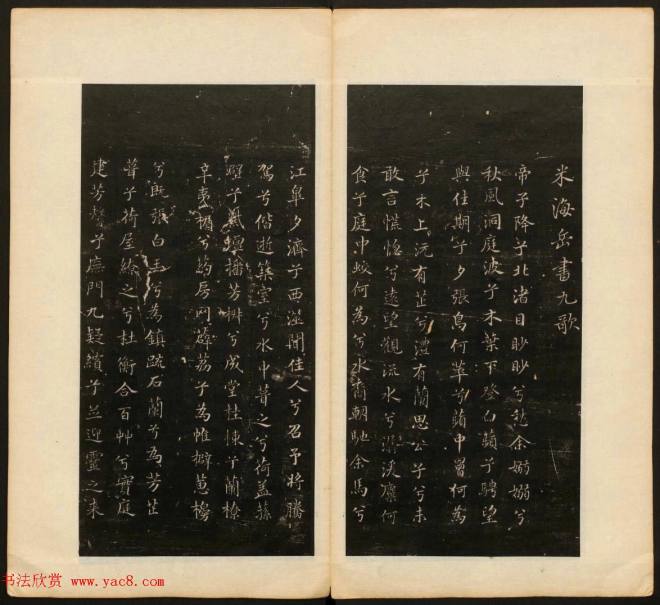 米海岳書九歌
帝子降兮北渚目眇眇兮愁余嫋嫋兮
秋風洞庭波兮木葉下登白蘋兮騁望
與佳期兮夕張鳥何萃兮蘋中罾何為
兮木上沅有芷兮澧有蘭思公子兮未
敢言慌惚兮遠望觀流水兮潺湲麋何
食兮庭中蛟何為兮水裔朝馳余馬兮
江皋夕濟兮西澨聞佳人兮召予將騰
駕兮偕逝築室兮水中葺之兮荷蓋蓀
壁兮紫壇播芳椒兮成堂桂棟兮蘭橑
辛夷楣兮葯房网薜荔兮為帷擗蕙櫋
兮既張白玉兮為鎮疏石蘭兮為芳芷
葺兮荷屋繚之兮杜衡合百艸兮實庭
建芳馨兮廡門九嶷繽兮並迎靈之来
书法欣赏 www.yac8.com